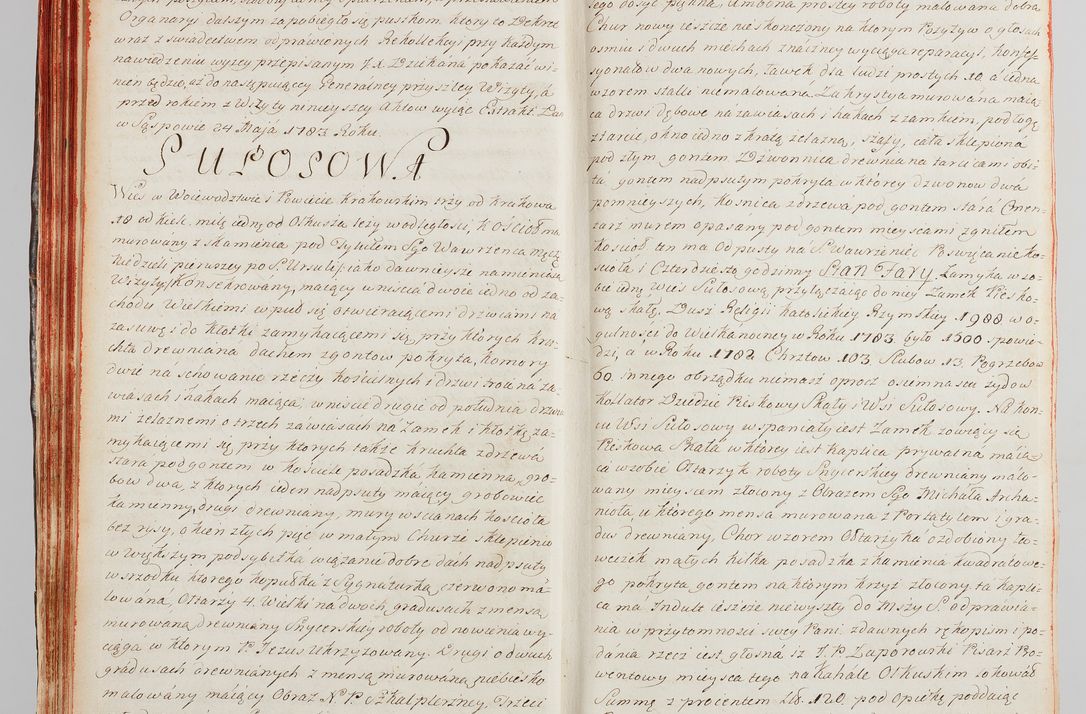 Organary daszym zapobiegło się pustkom który to Dekret
wraz z swiadectwem odprawionych Rekollekcyi przy Każdym
nawiedzeniu wyzey przepisanym J. X. Dziekana pokazać wi=
nien będzie, aż do następuiącey Generalney przyszłey Wizyty, á
przed rokiem z Wizyty ninieyszey Aktow wyiąć Extrakt. Dan
w Sąspowie 24 Maja 1783 Roku.
SUŁOSOWA
Wies w Woiewodztwie i Powiecie Krakowskim trzy od Krakowa
18 od Kielc milę iedną od Olkusza leży w odległości, KOSCIOŁ ma
murowany z Kamienia pod Tytułem Sgo Wawrzenca Męcz:
tudzieli pierwszey po S. Urszuli, iako dawnieysze namieniaią
Wizyty, Konsekrowany, maiący wniscia dwoie iedno od za=
chodu Wielkiemi w puł się otwieraiącemi drzwiami na
zasuwę i do Kłotki zamykaiącemi się przy których Kru=
chta drewniana dachem z gontow pokryta, Komory
dwie na schowanie rzeczy Kościelnych i drzwi troie na za=
wiasach i hakach maiąca, wniscie drugie od południa drzwia
mi żelaznemi o trzech zawiasach na Zamek i kłotkę za=
mykaiącemi się przy których także kruchta z drzewa
stara pod gontem w Kościele posadzka kamienna, gro=
bow dwa, z których ieden nadpsuty maiący grobowiec
kamienny, drugi drewniany, mury w scianach Kościoła
bez rysy, okien złych pięć w małym Churze sklepienie
w Większym podsybitka wiązanie dobre dach nadpsuty
w srzodku którego kopułka z Sygnaturką czerwono ma=
lowaná, Ołtarzy 4. Wielki na dwoch gradusach z mensą
murowaną drewniany Snycerskiey roboty odnowienia wy=
ciąga w którym P. Jezus Ukrzyżowany. Drugi o dwuch
gradusach drewnianych z mensą murowaną niebiesko
malowany maiący Obraz N. P. Szkaplerzney, Trzeci
tego dosyć piękna, Ambona prostey roboty malowana dobra
Chur nowy ieszcze nieskonczony na ktorym Pozytyw o głosach
osmiu i dwuch miechach znaczney wyciąga reparacyi, Konfes=
syonałow dwa nowych, ławek dla ludzi prostych 10, a iedna
wzorem stalli niemalowana. Zakrystya murowana maią=
ca drzwi dębowe na zawiasach i hakach z zamkiem, podłogę
z tarcic, okno iedno z kratą zelazną, szafy, cała sklepiona
pod złym gontem Dzwonnica drewniana tarcicami obi=
tá gontem nadpsutym pokryta w ktorey dzwonow dwa
pomnieyszych, Kosnica z drzewa pod gontem stárá Cmen=
tarz murem opasany pod gontem mieyscami zgniłem
Kościoł ten ma Odpusty na S. Wawrzeniec Poswięcanie Ko=
scioła i Czterdziesto godzinny Stan Fary, Zamyka w so=
bie iedną Wies Sułosową przyłączaiąc do niey Zamek Piesko=
wą skałę, Dusz Religii Katolickiey Rzymskiey 1988 w o=
gulności do Wielkanocney w Roku 1783 było 1500 spowie=
dzi, a w Roku 1782 Chrztow 103 Slubow 13 Pogrzebow
60. innego obrządku niemasz oprocz osiemnastu żydow
Kollator Dziedzic Pieskowy Skały i Wsi Sułosowy. Na kon=
cu Wsi Sułosowy wspaniały iest Zamek zowiący się
Pieskowa Skała w ktorey iest kaplica prywatna maia=
ca w sobie Ołtarzyk roboty Snycerskiey drewniany malo=
wany mieyscem złocony z Obrazem Sgo Michała Archa=
nioła, u ktorego mensa murowana z Portatylem i gra=
dus drewniany, Chor wzorem Ołtarzyka ozdobiony ła=
weczek małych kilka posadzka z kamienia kwadratowe=
go pokryta gontem na ktorym krzyż złocony ta kapli=
ca má Indult ieszcze niewyszły do Mszy S. odprawia=
nia w przytomności swey Pani, z dawnych rękopism i po=
dania rzecz iest głosna iż J. P. Zaporowski Pisarz Pro=
wentowy mieysca tego na Kahale Olkuskim lokował
Summę z procentem Zł. 120. pod opiekę poddaiąc